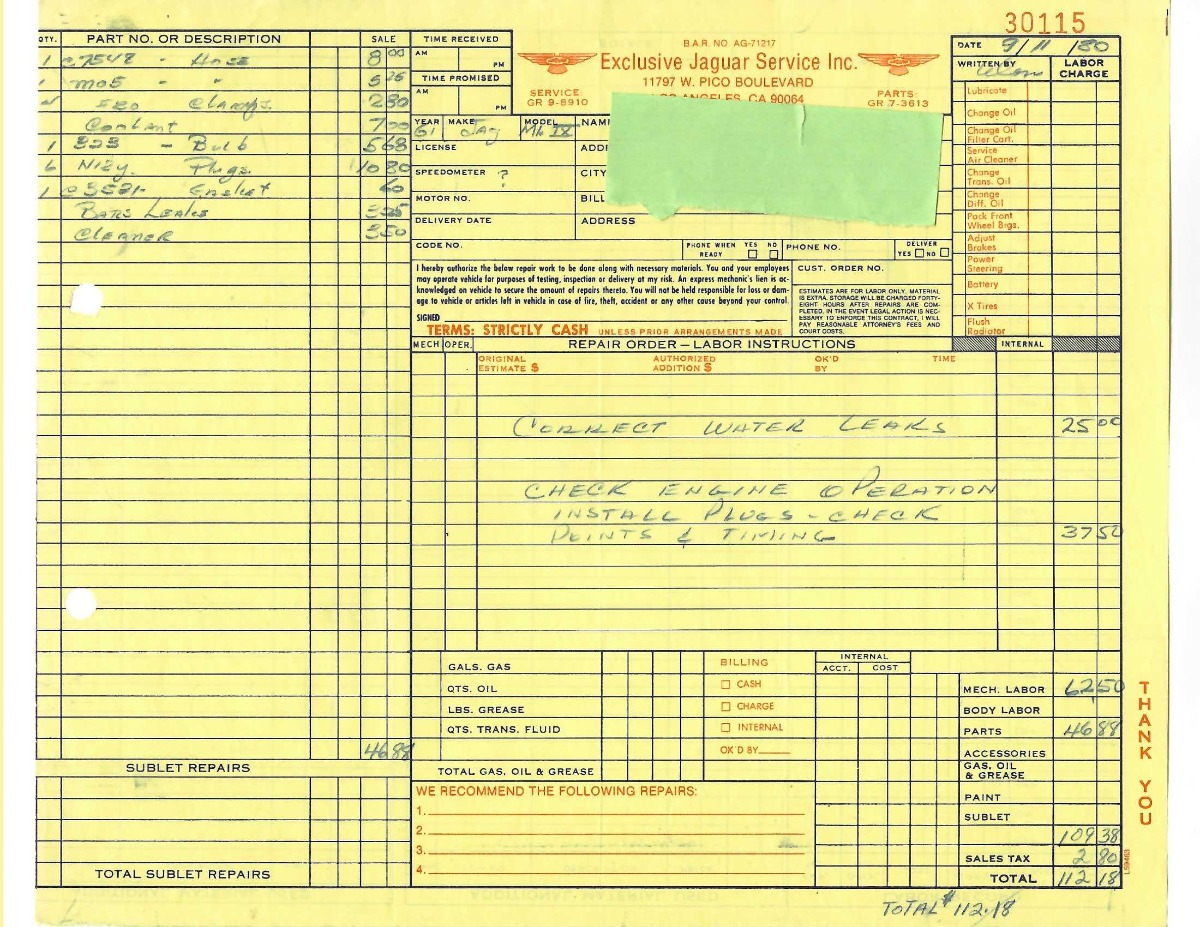 30115
QTY. PART NO. OR DESCRIPTION SALE
1 C7548 - Hose 8 00
1 MO5 - " 5 25
Clamps 2 80
Coolant 7 00
1 323 - Bulb 5 68
6 N12y. Plugs 10 80
1 C3521- Gasket 60
Bars Leaks 3 25
Cleaner 3 50
46 88
SUBLET REPAIRS
TOTAL SUBLET REPAIRS
TIME RECEIVED
AM PM
TIME PROMISED
AM PM
B.A.R. NO. AG-71217
Exclusive Jaguar Service Inc.
11797 W. PICO BOULEVARD
LOS ANGELES, CA 90064
SERVICE:
GR 9-8910
PARTS:
GR 7-3613
DATE 9/11/80
WRITTEN BY
LABOR CHARGE
Lubricate
Change Oil
Change Oil
Filter Cart.
Service
Air Cleaner
Change
Trans. Oil
Change
Diff. Oil
Pack Front
Wheel Brgs.
Adjust
Brakes
Power
Steering
Battery
X Tires
Flush
Radiator
YEAR 61 MAKE Jag MODEL Mk IX NAME
LICENSE ADD
SPEEDOMETER ? CITY
MOTOR NO. BILL
DELIVERY DATE ADDRESS
CODE NO. PHONE WHEN READY YES NO PHONE NO. DELIVER YES NO
I hereby authorize the below repair work to be done along with necessary materials. You and your employees
may operate vehicle for purposes of testing, inspection or delivery at my risk. An express mechanic's lien is ac-
knowledged on vehicle to secure the amount of repairs thereto. You will not be held responsible for loss or dam-
age to vehicle or articles left in vehicle in case of fire, theft, accident or any other cause beyond your control.
SIGNED
TERMS: STRICTLY CASH UNLESS PRIOR ARRANGEMENTS MADE
CUST. ORDER NO.
ESTIMATES ARE FOR LABOR ONLY, MATERIAL
IS EXTRA. STORAGE WILL BE CHARGED FORTY-
EIGHT HOURS AFTER REPAIRS ARE COM-
PLETED. IN THE EVENT LEGAL ACTION IS NEC-
ESSARY TO ENFORCE THIS CONTRACT, I WILL
PAY REASONABLE ATTORNEY'S FEES AND
COURT COSTS.
MECH OPER. REPAIR ORDER — LABOR INSTRUCTIONS INTERNAL
ORIGINAL ESTIMATE $ AUTHORIZED ADDITION $ OK'D BY TIME
CORRECT WATER LEAKS 25 00
CHECK ENGINE OPERATION
INSTALL PLUGS - CHECK
POINTS & TIMING 37 50
GALS. GAS
QTS. OIL
LBS. GREASE
QTS. TRANS. FLUID
TOTAL GAS, OIL & GREASE
BILLING
CASH
CHARGE
INTERNAL
OK'D BY
INTERNAL
ACCT. COST
WE RECOMMEND THE FOLLOWING REPAIRS:
1.
2.
3.
4.
MECH. LABOR 62 50
BODY LABOR
PARTS 46 88
ACCESSORIES
GAS, OIL
& GREASE
PAINT
SUBLET
109 38
SALES TAX 2 80
TOTAL 112 18
TOTAL $ 112.18
THANK YOU